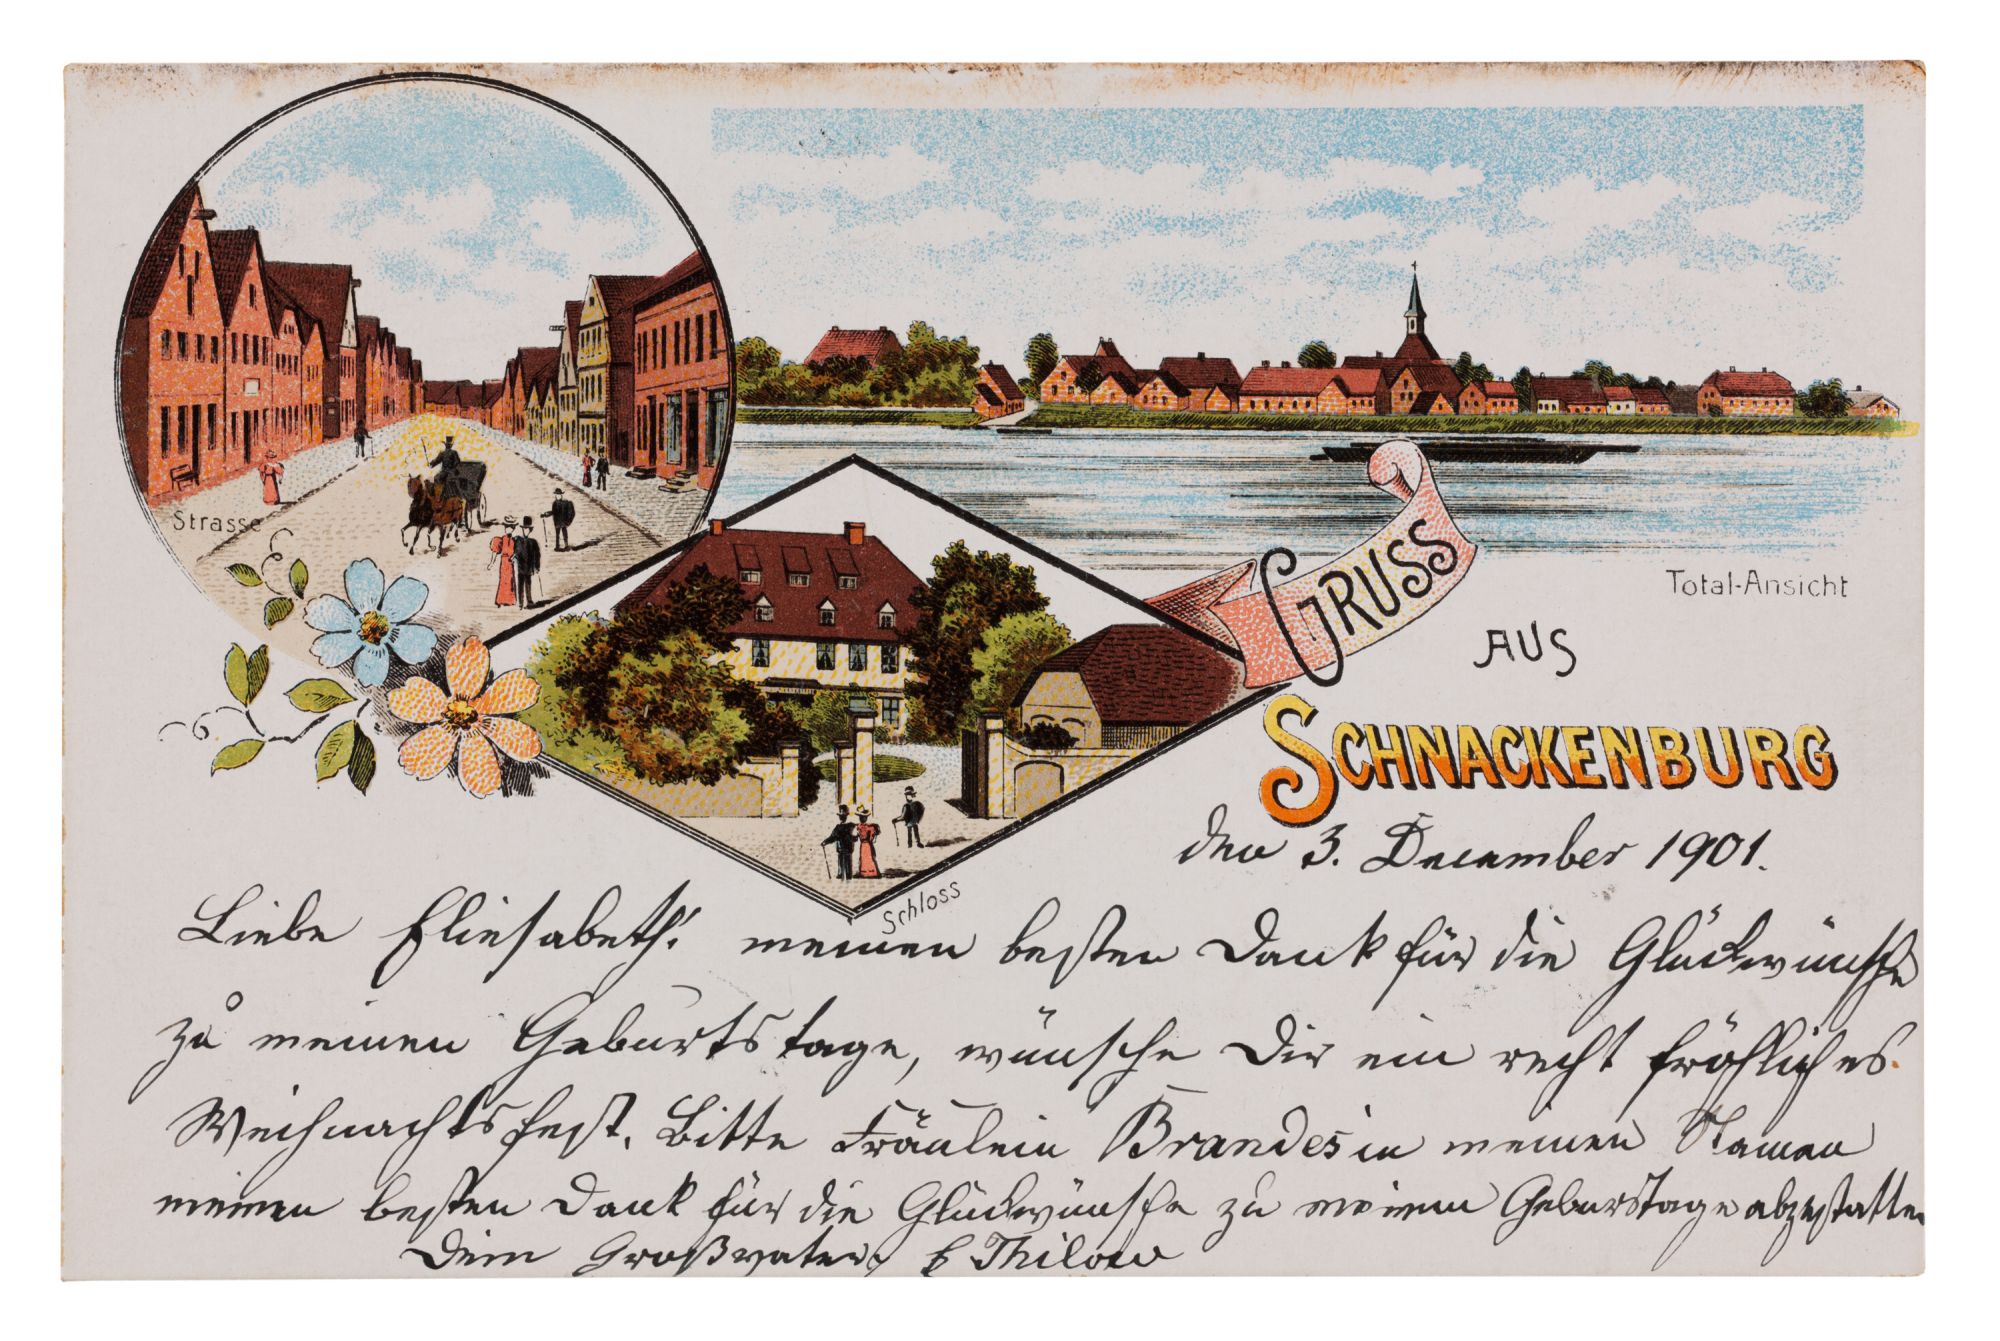 Strasse
Total-Ansicht
GRUSS
AUS
SCHNACKENBURG
Schloss
den 3. December 1901.
Liebe Eliesabeth! meinen besten Dank für die Glückwünsche
zu meinen Geburtstage, wünsche Dir ein recht fröhliches
Weihnachtsfest. Bitte Fräulein Brandes in meinen Namen
meinen besten Dank für die Glückwünsche zu meinem Geburtstage abzustatten
Dein Großvater, Thilow